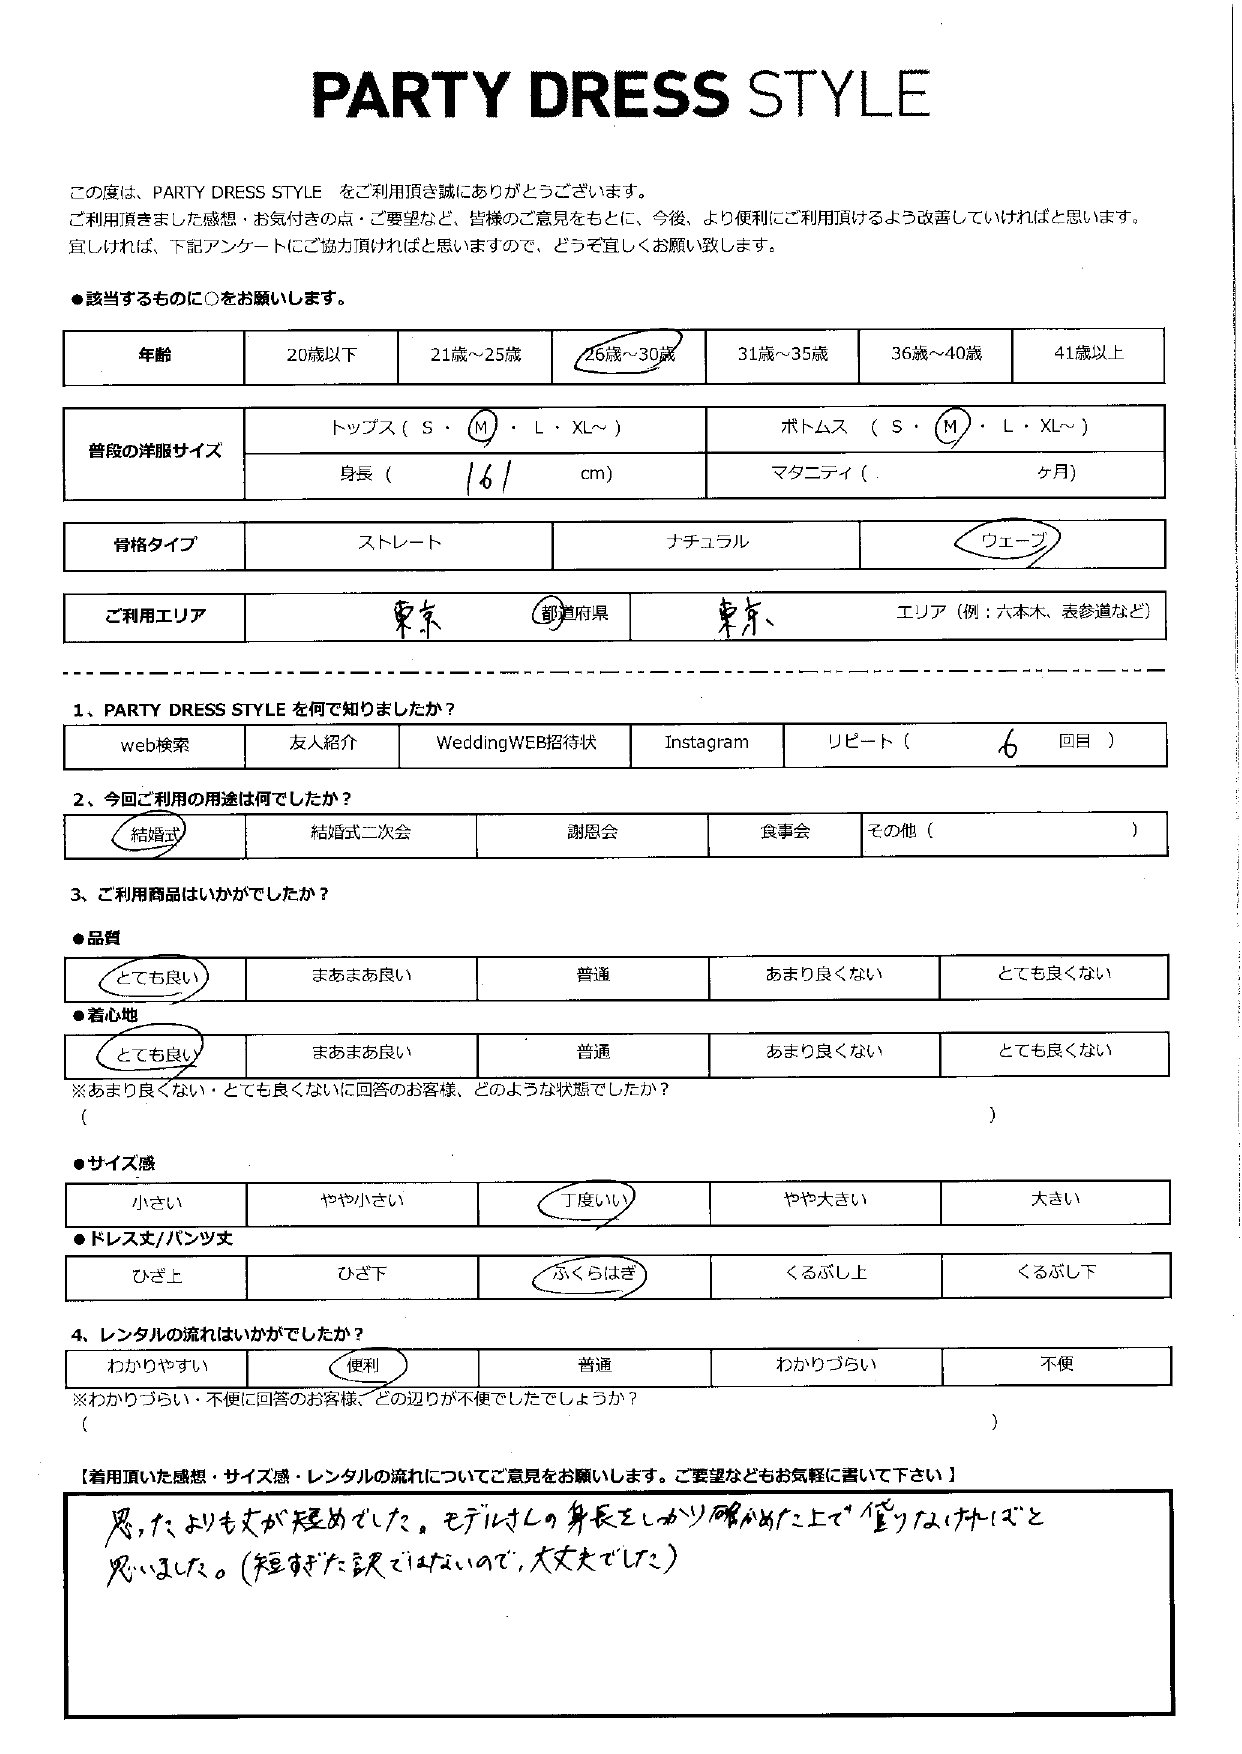 PARTY DRESS STYLE
この度は、PARTY DRESS STYLE をご利用頂き誠にありがとうございます。
ご利用頂きました感想・お気付きの点・ご要望など、皆様のご意見をもとに、今後、より便利にご利用頂けるよう改善していければと思います。
宜しければ、下記アンケートにご協力頂ければと思いますので、どうぞ宜しくお願い致します。
●該当するものに○をお願いします。
年齢 20歳以下 21歳～25歳 26歳～30歳 31歳～35歳 36歳～40歳 41歳以上
普段の洋服サイズ トップス ( S ・ M ・ L ・ XL～ ) ボトムス ( S ・ M ・ L ・ XL～ )
身長 ( 161 cm) マタニティ ( ヶ月)
骨格タイプ ストレート ナチュラル ウェーブ
ご利用エリア 東京 都道府県 東京、 エリア (例：六本木、表参道など)
1、PARTY DRESS STYLE を何で知りましたか？
web検索 友人紹介 WeddingWEB招待状 Instagram リピート ( 6 回目 )
2、今回ご利用の用途は何でしたか？
結婚式 結婚式二次会 謝恩会 食事会 その他 ( )
3、ご利用商品はいかがでしたか？
●品質
とても良い まあまあ良い 普通 あまり良くない とても良くない
●着心地
とても良い まあまあ良い 普通 あまり良くない とても良くない
※あまり良くない・とても良くないに回答のお客様、どのような状態でしたか？
( )
●サイズ感
小さい やや小さい 丁度いい やや大きい 大きい
●ドレス丈/パンツ丈
ひざ上 ひざ下 ふくらはぎ くるぶし上 くるぶし下
4、レンタルの流れはいかがでしたか？
わかりやすい 便利 普通 わかりづらい 不便
※わかりづらい・不便に回答のお客様、どの辺りが不便でしたでしょうか？
( )
【着用頂いた感想・サイズ感・レンタルの流れについてご意見をお願いします。ご要望などもお気軽に書いて下さい 】
思ったよりも丈が短めでした。モデルさんの身長をしっかり確かめた上で借りなければと
思いました。(短すぎた訳ではないので、大丈夫でした)